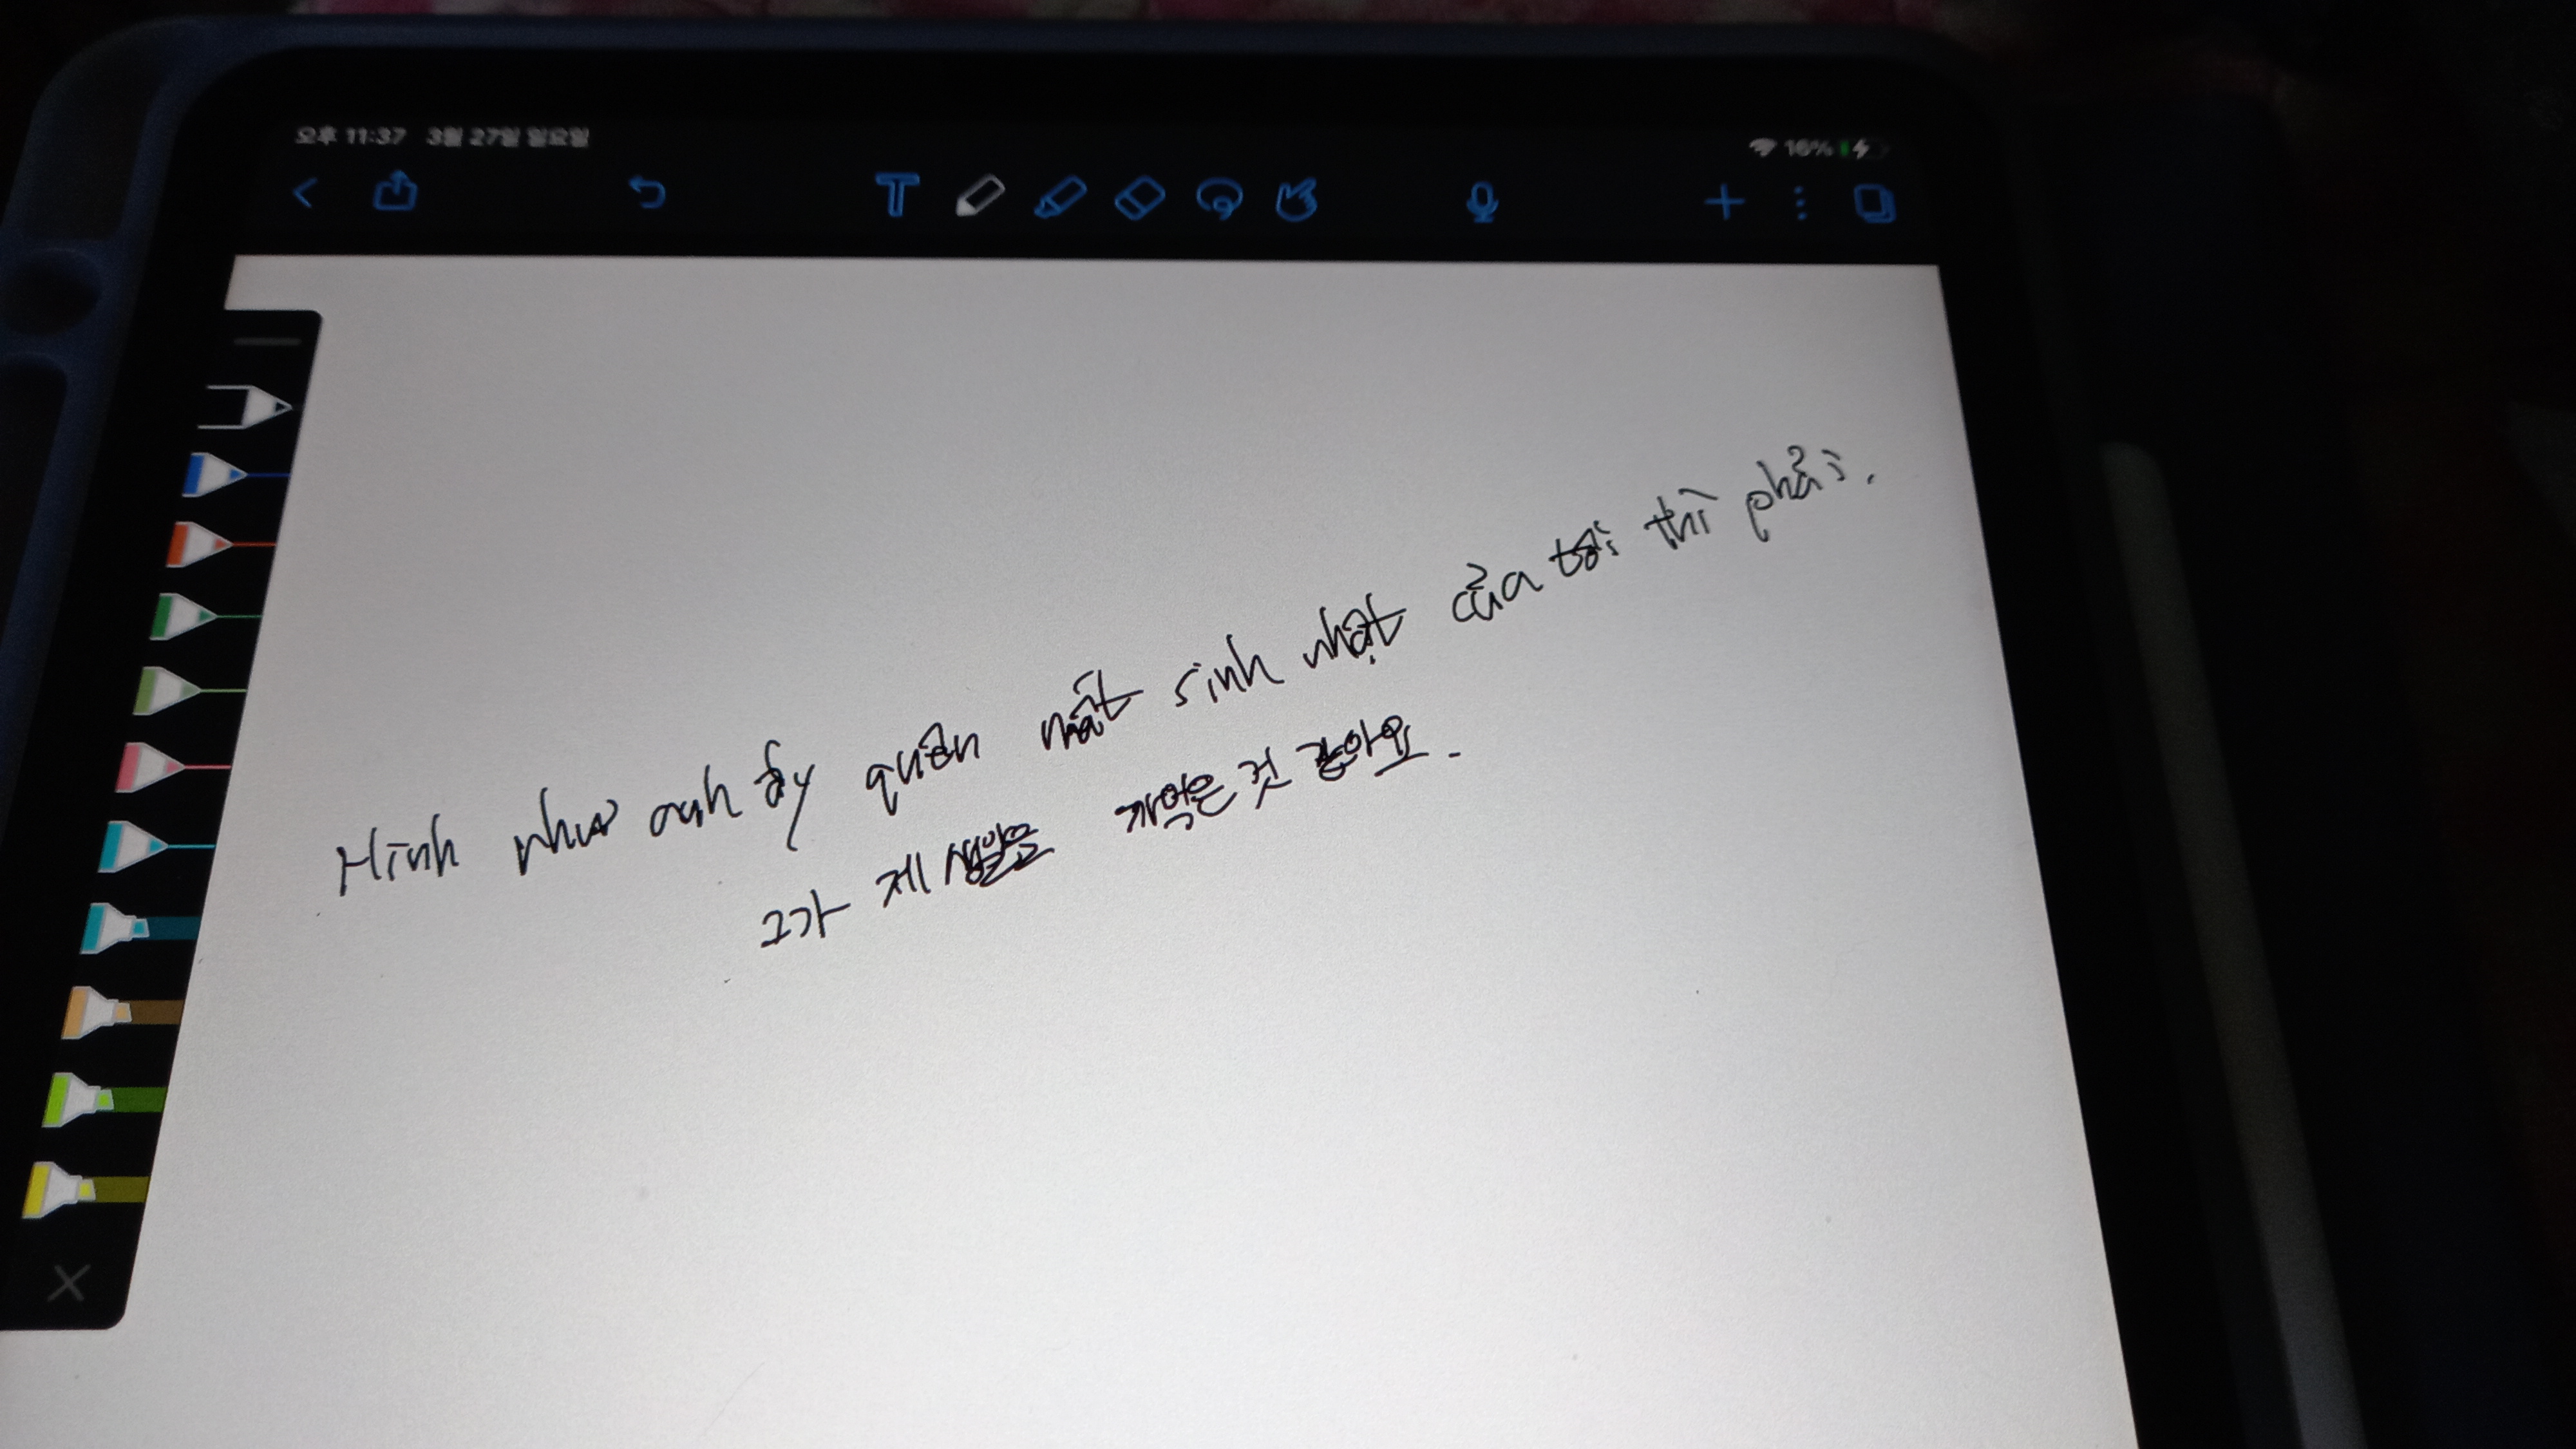 오후 11:37 3월 27일 일요일 16%
T
Hình như anh ấy quên mất sinh nhật của tôi thì phải.
그가 제 생일을 까먹은 것 같아요.